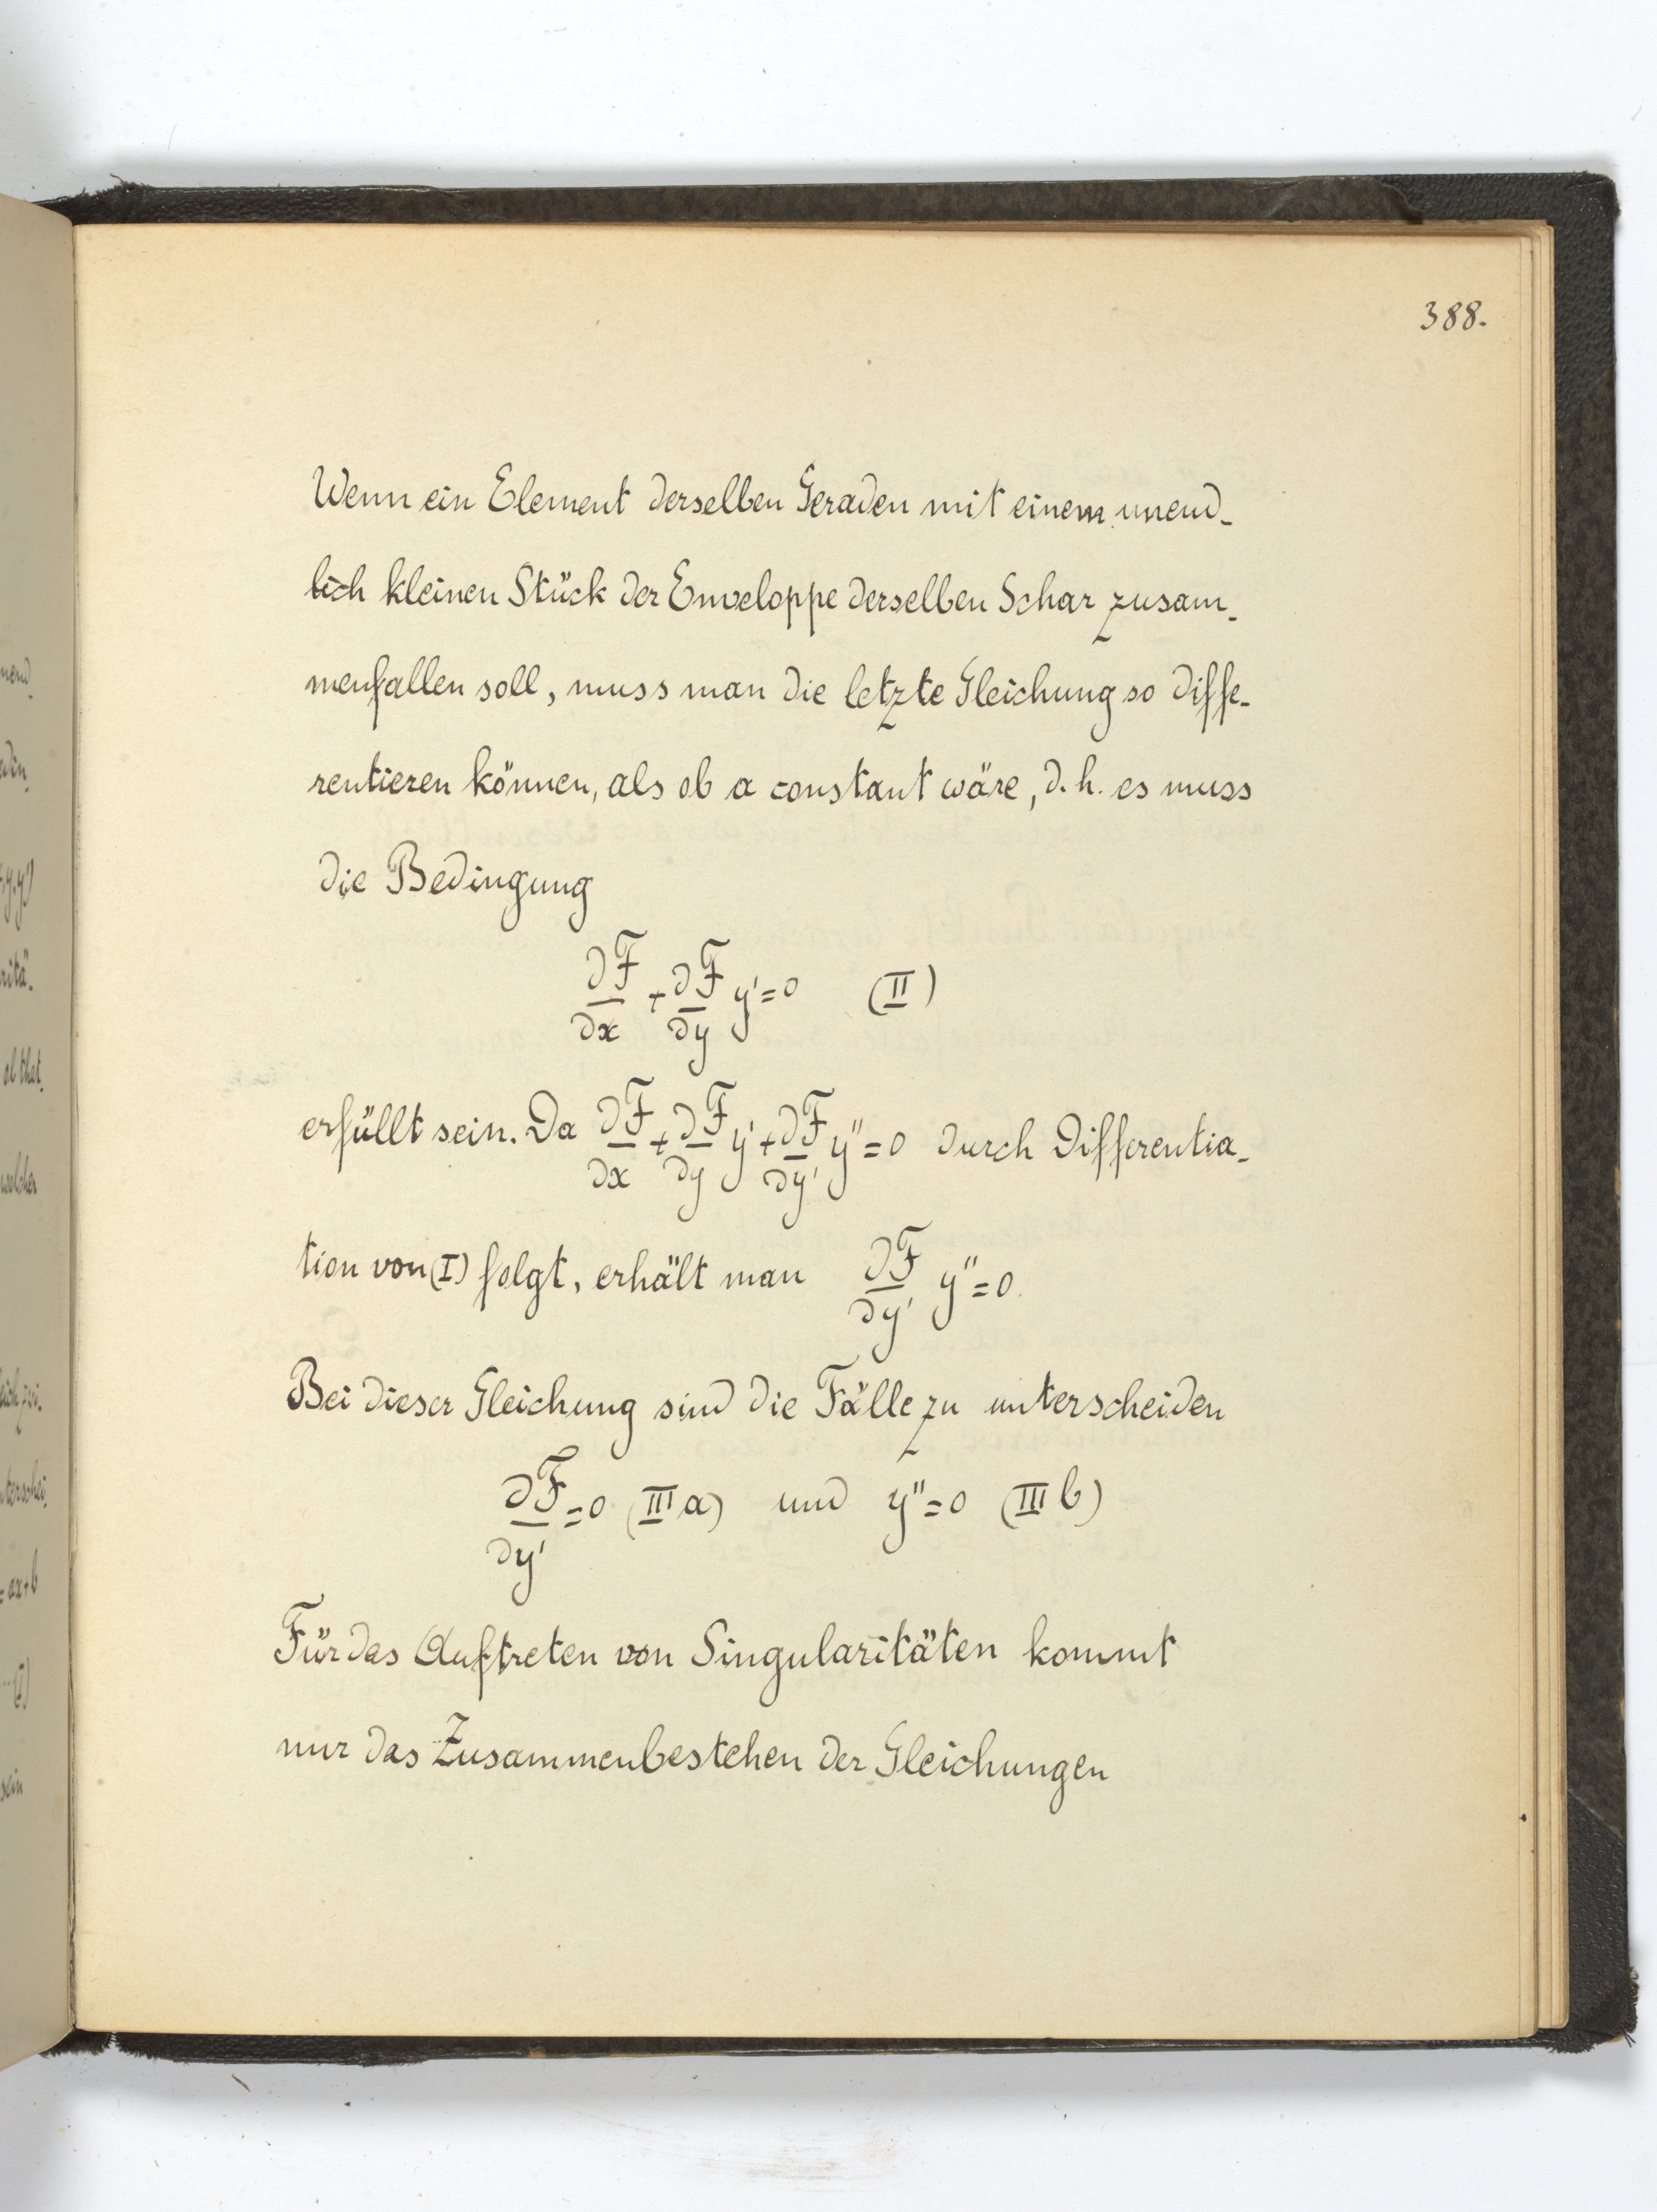 388.
Wenn ein Element derselben Geraden mit einem unend-
lich kleinen Stück der Enveloppe derselben Schar zusam-
menfallen soll, muss man die letzte Gleichung so diffe-
rentieren können, als ob a constant wäre, d. h. es muss
die Bedingung
∂F/∂x + ∂F/∂y y' = 0 (II)
erfüllt sein. Da ∂F/∂x + ∂F/∂y y' + ∂F/∂y' y'' = 0 durch Differentia-
tion von (I) folgt, erhält man ∂F/∂y' y'' = 0.
Bei dieser Gleichung sind die Fälle zu unterscheiden
∂F/∂y' = 0 (III a) und y'' = 0 (III b)
Für das Auftreten von Singularitäten kommt
nur das Zusammenbestehen der Gleichungen